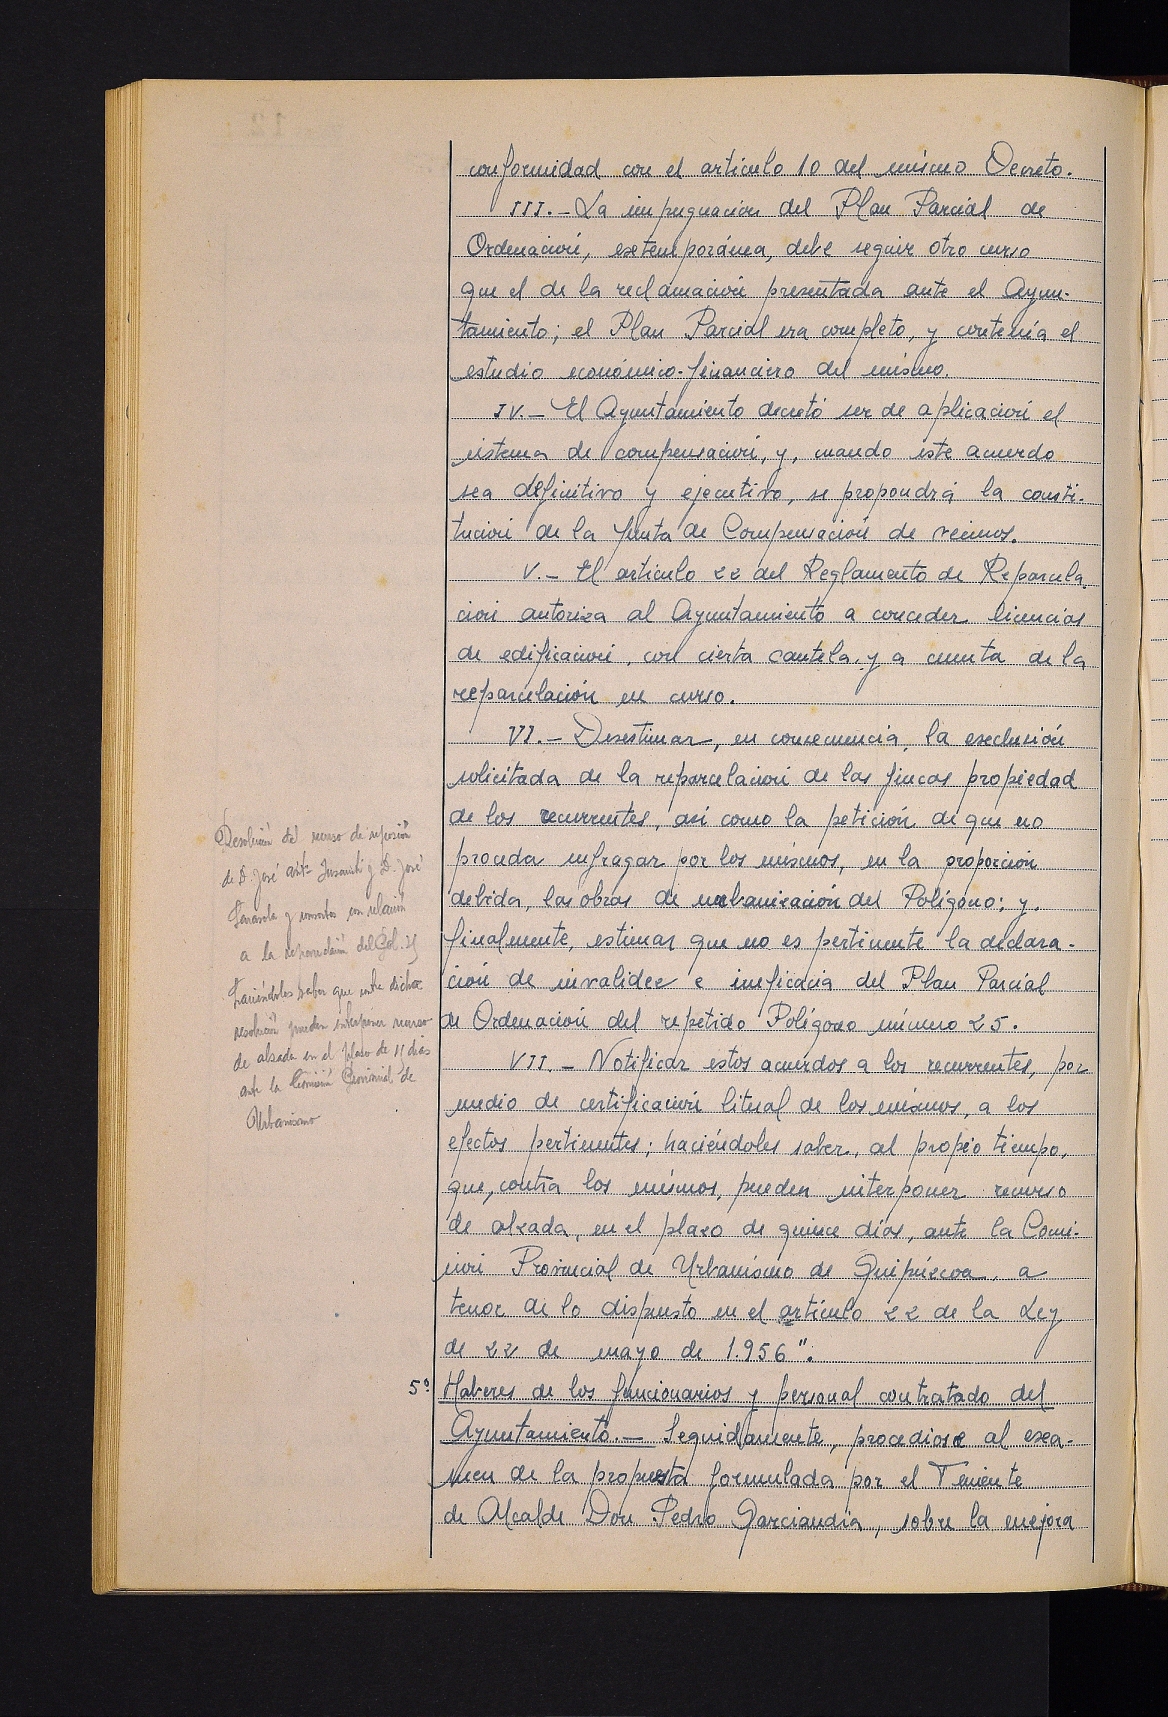 conformidad con el artículo 10 del mismo Decreto.
III.- La impugnación del Plan Parcial de
Ordenación, extemporánea, debe seguir otro curso
que el de la reclamación presentada ante el Ayun-
tamiento; el Plan Parcial era completo, y contenía el
estudio económico-financiero del mismo.
IV.- El Ayuntamiento decretó ser de aplicación el
sistema de compensación, y, cuando este acuerdo
sea definitivo y ejecutivo, se propondrá la consti-
tución de la Junta de Compensación de vecinos.
V.- El artículo 22 del Reglamento de Reparcela
ción autoriza al Ayuntamiento a conceder licencias
de edificación, con cierta cautela, y a cuenta de la
reparcelación en curso.
VI.- Desestimar, en consecuencia, la exclusión
solicitada de la reparcelación de las fincas propiedad
de los recurrentes, así como la petición de que no
proceda sufragar por los mismos, en la proporción
debida, las obras de urbanización del Polígono; y,
finalmente, estimar que no es pertinente la declara-
ción de invalidez e ineficacia del Plan Parcial
de Ordenación del repetido Polígono número 25.
VII.- Notificar estos acuerdos a los recurrentes, por
medio de certificación literal de los mismos, a los
efectos pertinentes; haciéndoles saber, al propio tiempo,
que, contra los mismos, pueden interponer recurso
de alzada, en el plazo de quince días, ante la Comi-
sión Provincial de Urbanismo de Guipúzcoa, a
tenor de lo dispuesto en el artículo 22 de la Ley
de 22 de mayo de 1.956".
5º Haberes de los funcionarios y personal contratado del
Ayuntamiento.- Seguidamente, procediose al exa-
men de la propuesta formulada por el Teniente
de Alcalde Don Pedro Garciandia, sobre la mejora
Resolución del recurso de reposición
de D. José Antº y D. José
y consortes con relación
a la reparcelación del Pol. 25
haciéndoles saber que contra dicha
resolución pueden interponer recurso
de alzada en el plazo de 15 días
ante la Comisión Provincial de
Urbanismo